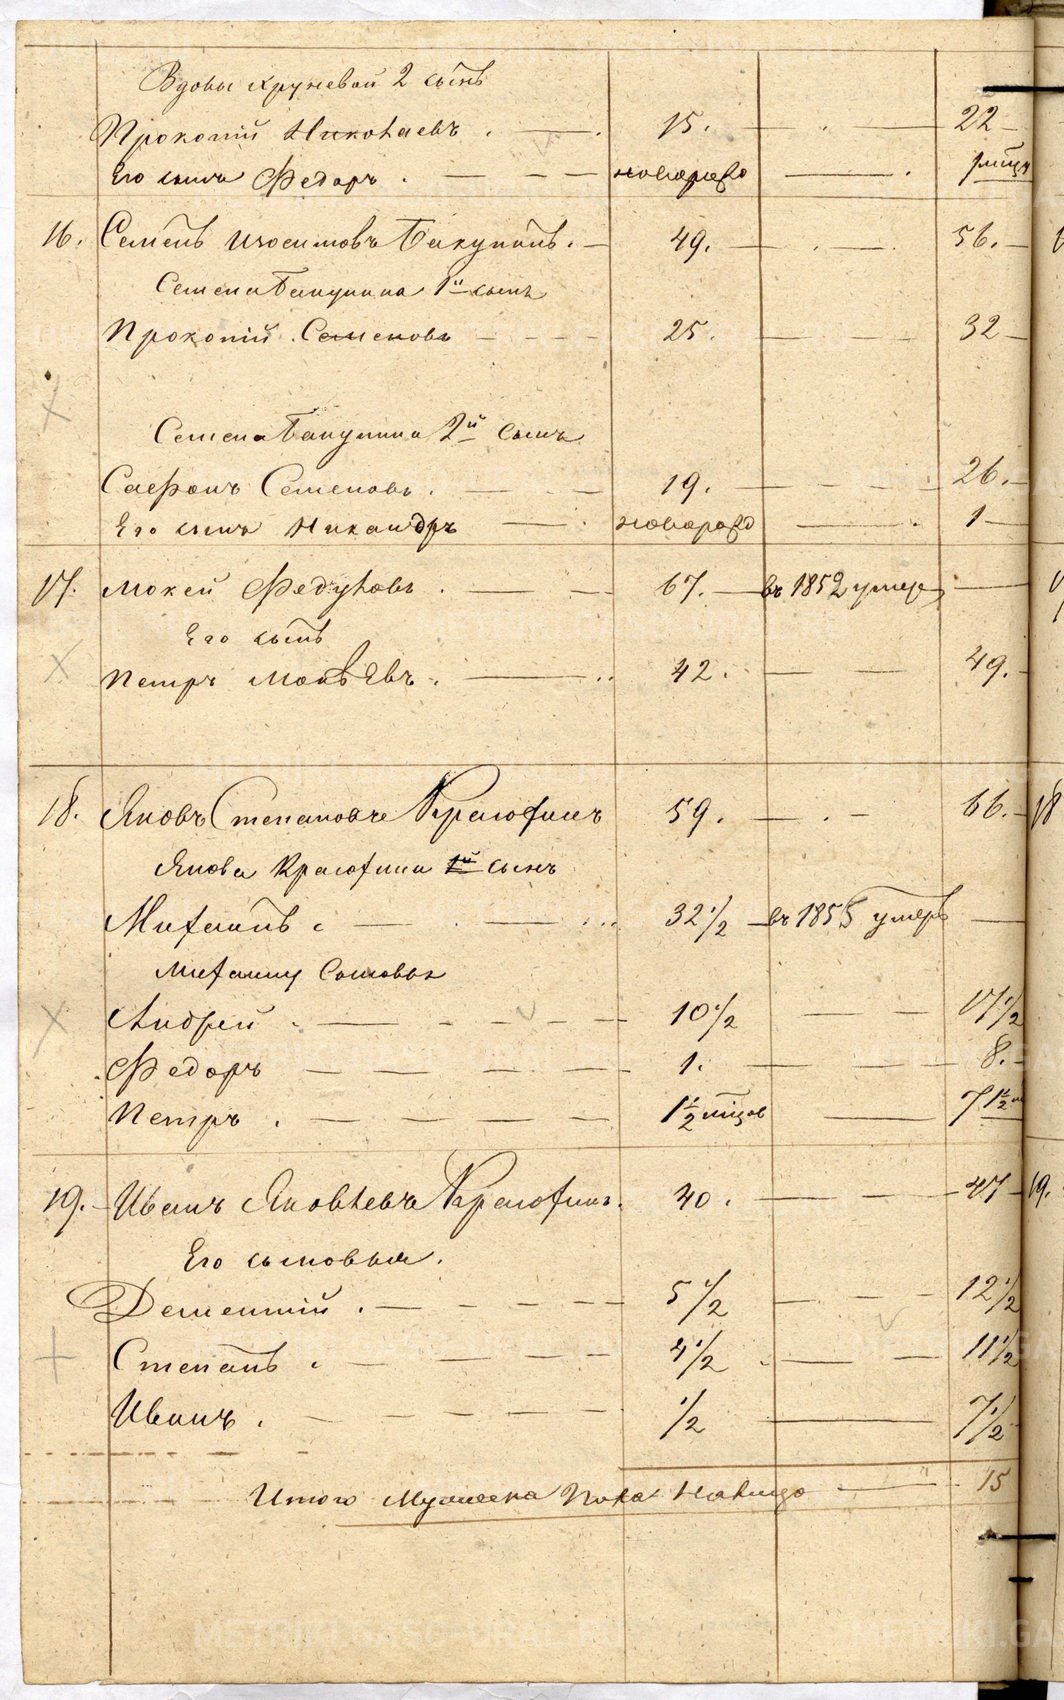 Вдовы Хруневой 2 сынъ
Прокопій Николаевъ . 15. 22
Его сынъ Федоръ . новорожд
16. Семенъ Изосимовъ Бакунинъ. 49. 56.
Семена Бакунина 1й сынъ
Прокопій Семеновъ 25. 32
Семена Бакунина 2й сынъ
Саефонъ Семеновъ . 19. 26.
Его сынъ Никандръ новорожд 1
17. Мокей Федуловъ . 67. въ 1852 умеръ
Его сынъ
Петръ Мокѣевъ . 42. 49.
18. Яковъ Степановъ Красофинъ 59. 66. 18
Якова Красофина 1й сынъ
Михаилъ 32 1/2 въ 1855 умеръ
Михаилы Сыновья
Андрей 10 1/2 17 1/2
Федоръ 1. 8.
Петръ . 1 1/2 мѣцов 7 1/2 м
19. Иванъ Яковлевъ Красофинъ. 40. 47 19.
Его сыновья.
Дементій . 5 1/2 12 1/2
Степанъ 4 1/2 11 1/2
Иванъ . 1/2 7 1/2
Итого Мужеска пола налицо 15